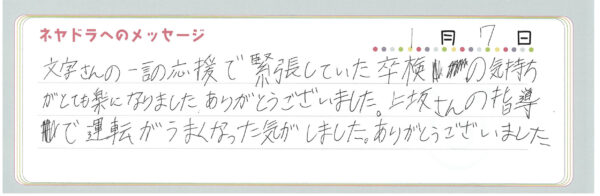 ネヤドラへのメッセージ
1月7日
文字さんの一言の応援で緊張していた卒検の気持ち
がとても楽になりました。ありがとうございました。上坂さんの指導
で運転がうまくなった気がしました。ありがとうございました